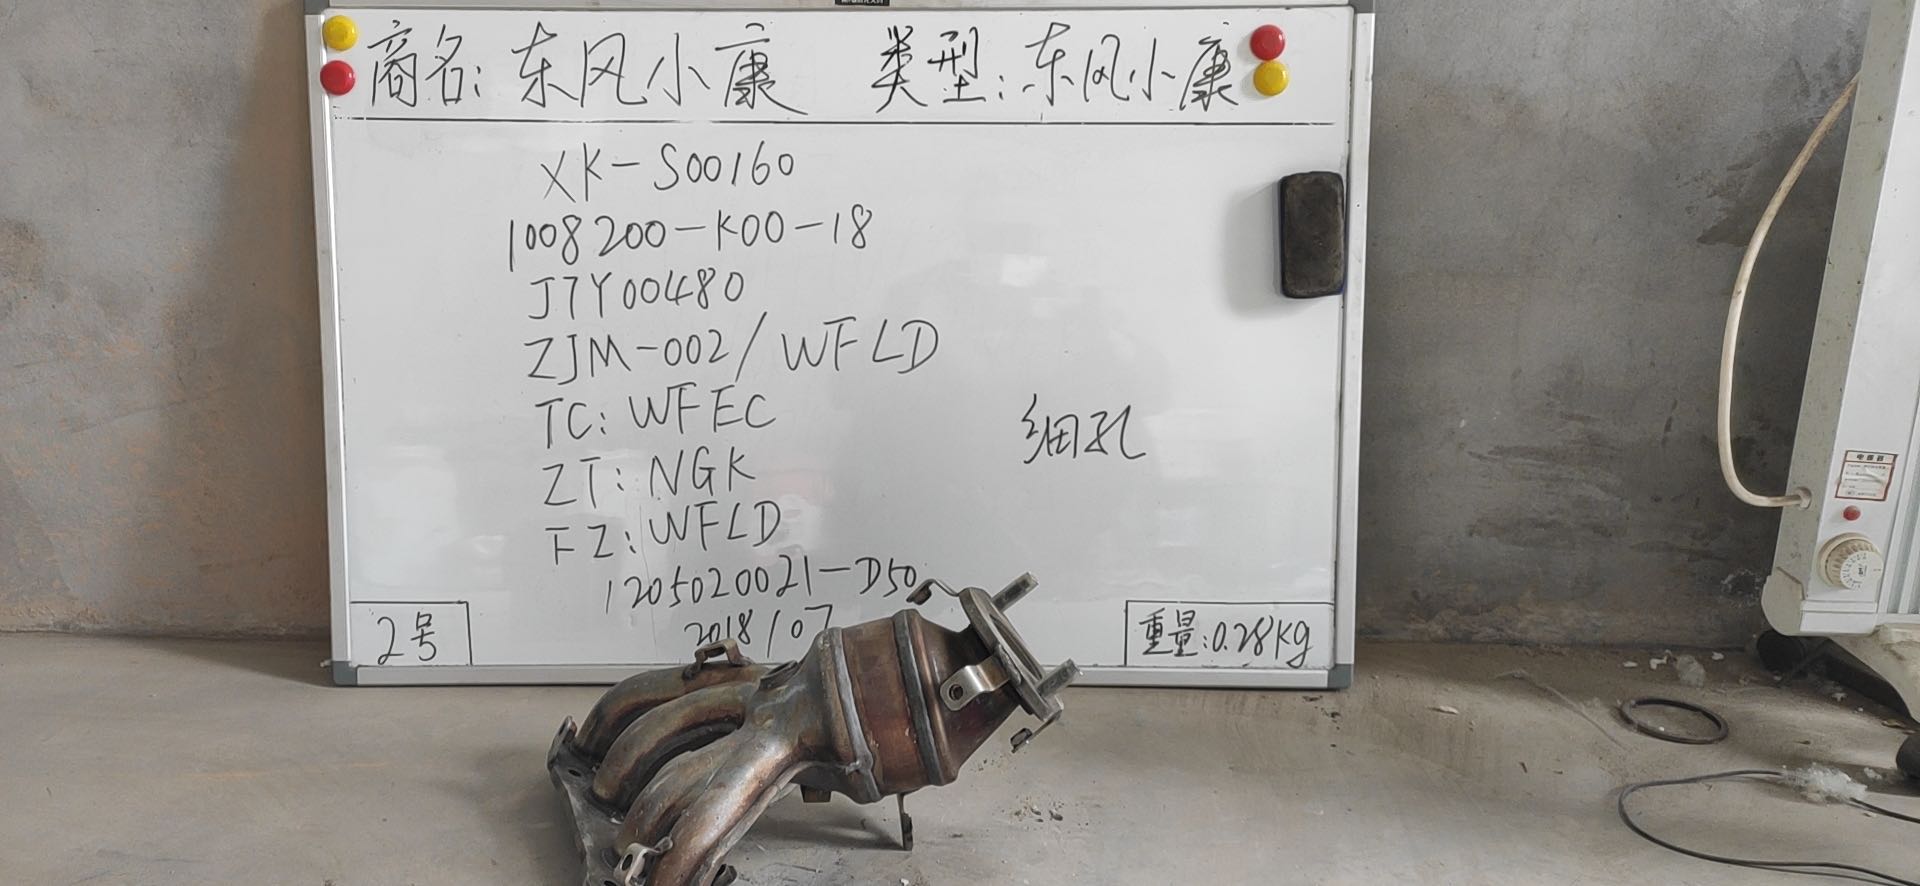 商名：东风小康 类型：东风小康
XK-S00160
1008200-K00-18
J7Y00480
ZJM-002/WFLD
TC：WFEC
细孔
ZT：NGK
FZ：WFLD
1205020021-D50
2018/07
2号
重量：0.28kg